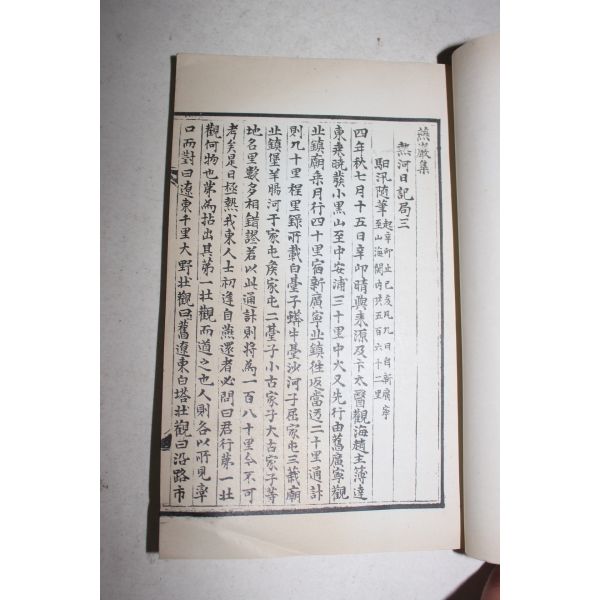 燕巖集
熱河日記局三
馹汛隨筆 起辛卯止己亥凡九日自新廣寧至山海關內共五百六十二里
四年秋七月十五日辛卯晴與來源及卞太醫觀海趙主簿達
東乘曉發小黑山至中安浦三十里中火又先行由舊廣寧觀
北鎭廟乘月行四十里宿新廣寧北鎭往返當迂二十里通計
則九十里程里錄所載白臺子蟒牛臺沙河子屈家屯三義廟
北鎭堡羊腸河于家屯侯家屯二臺子小古家子大古家子等
地名里數多相錯謬若以此通計則將爲一百八十里今不可
考矣是日極熱我東人士初逢自燕還者必問曰君行第一壯
觀何物也第爲拈出其第一壯觀而道之也人則各以所見率
口而對曰遼東千里大野壯觀曰舊遼東白塔壯觀曰沿路市